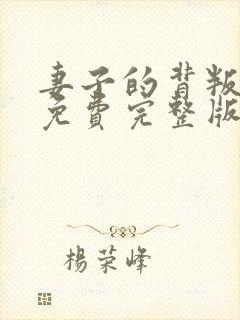 妻子的背叛
免費完整版
楊荣峰